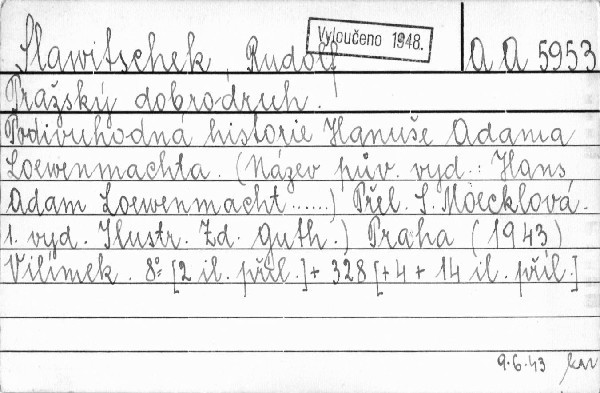 Slawitschek Rudolf
Vyloučeno 1948.
AA 5953
Pražský dobrodruh.
Podivuhodná historie Hanuše Adama
Loewenmachta. (Název pův. vyd.: Hans
Adam Loewenmacht......) Přel. S. Moecklová.
1. vyd. Ilustr. Zd. Guth.) Praha (1943)
Vilímek. 8° [2 il. příl.] + 328 [+ 4 + 14 il. příl.]
9.6.43